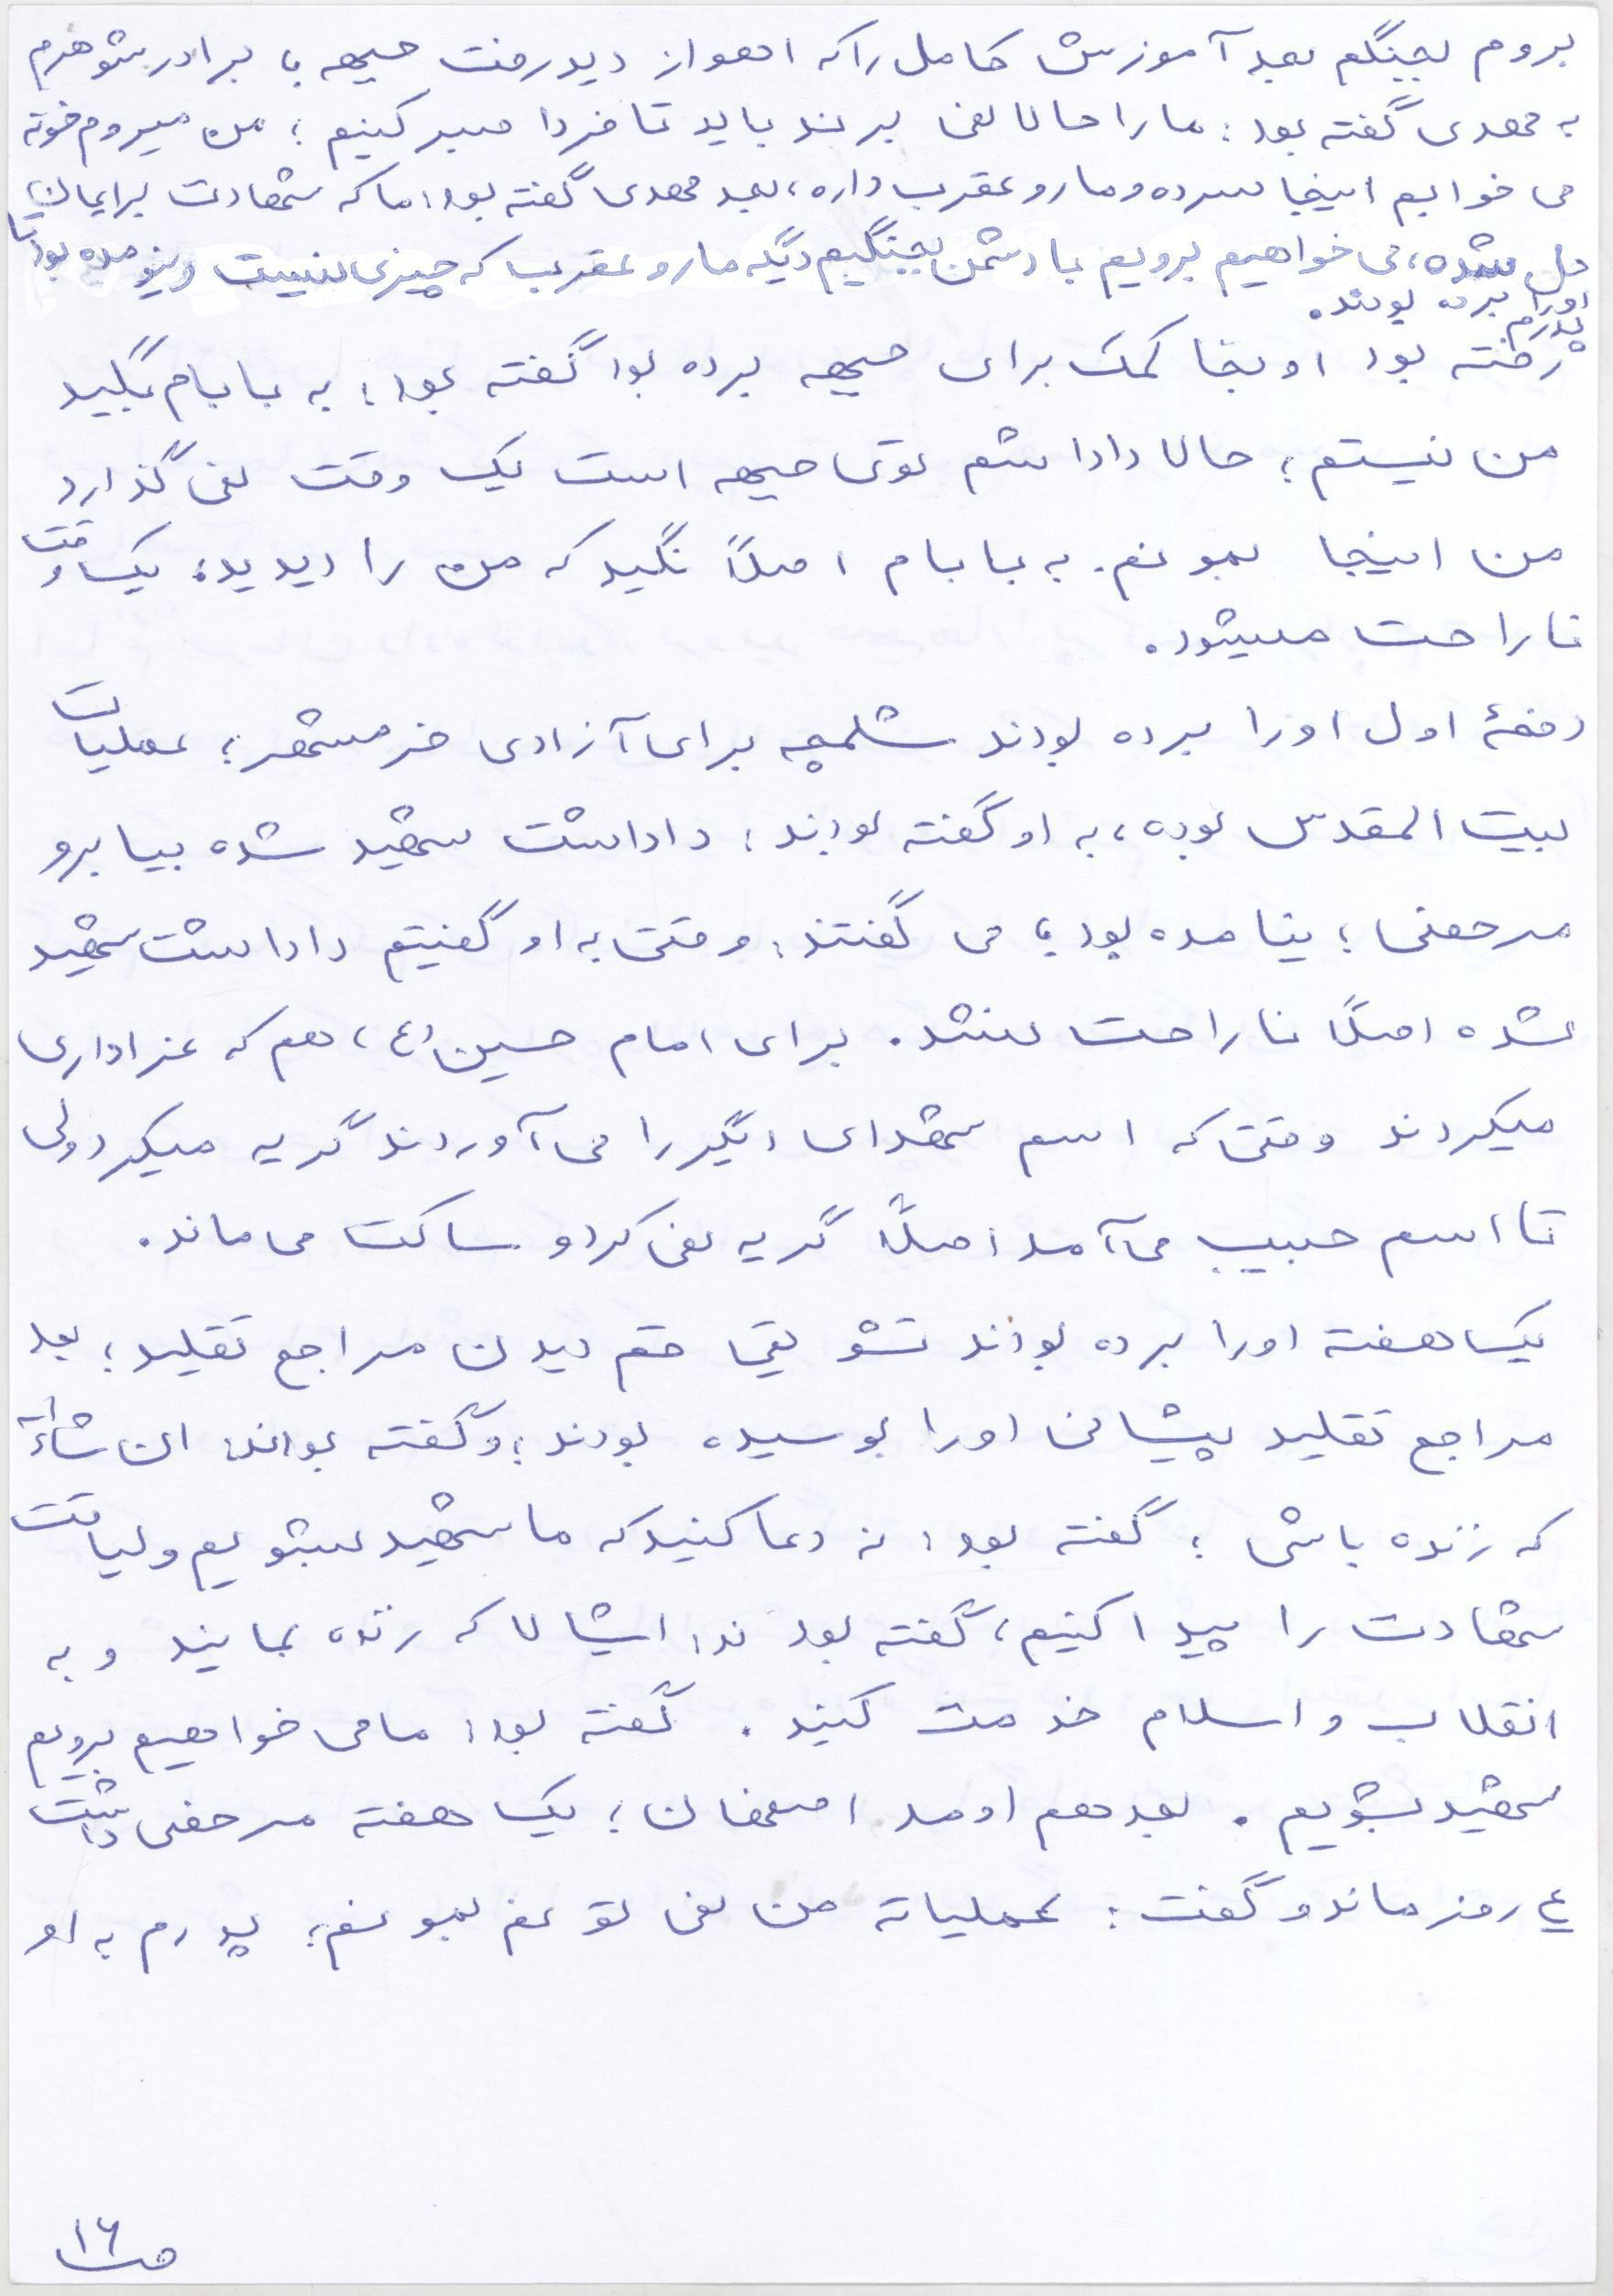 بروم بجنگم بعد آموزش کامل را که اهواز دید رفت جبهه با برادر شوهرم
به مهدی گفته بود: ما را حالا نمی برند باید تا فردا صبر کنیم؛ من میروم خونه
می خوابم اینجا سرده و مار و عقرب داره، بعد مهدی گفته بود: ما که شهادت برایمان
حل شده، می خواهیم برویم با دشمن بجنگیم دیگه مار و عقرب که چیزی نیست و نیومده بود تا
او را برده بودند.
پدرم
رفته بود اونجا کمک برای جبهه برده بود گفته بود: به بابام بگید
من نیستم؛ حالا داداشم توی جبهه است یک وقت نمی گذارد
من اینجا بمونم. به بابام اصلاً نگید که من را دیدید، یک وقت
ناراحت میشود.
دفعهٔ اول او را برده بودند شلمچه برای آزادی خرمشهر؛ عملیات
بیت المقدس بوده، به او گفته بودند: داداشت شهید شده بیا برو
مرخصی؛ نیامده بود؛ می گفتند: وقتی به او گفتیم داداشت شهید
شده اصلاً ناراحت نشد. برای امام حسین (ع) هم که عزاداری
میکردند وقتی که اسم شهدای دیگر را می آوردند گریه میکرد ولی
تا اسم حبیب می آمد اصلاً گریه نمی کرد و ساکت می ماند.
یک هفته او را برده بودند تشویقی قم دیدن مراجع تقلید؛ بعد
مراجع تقلید پیشانی او را بوسیده بودند؛ و گفته بودند: ان شاءالله
که زنده باشی؛ گفته بود: نه دعا کنید که ما شهید بشویم و لیاقت
شهادت را پیدا کنیم، گفته بودند: ایشالا که زنده بمانید و به
انقلاب و اسلام خدمت کنید. گفته بود: ما می خواهیم برویم
شهید بشویم. بعد هم اومد اصفهان؛ یک هفته مرخصی داشت
۴ روز ماند و گفت: عملیاته من نمی تونم بمونم؛ پدرم به او
ص ۱۶